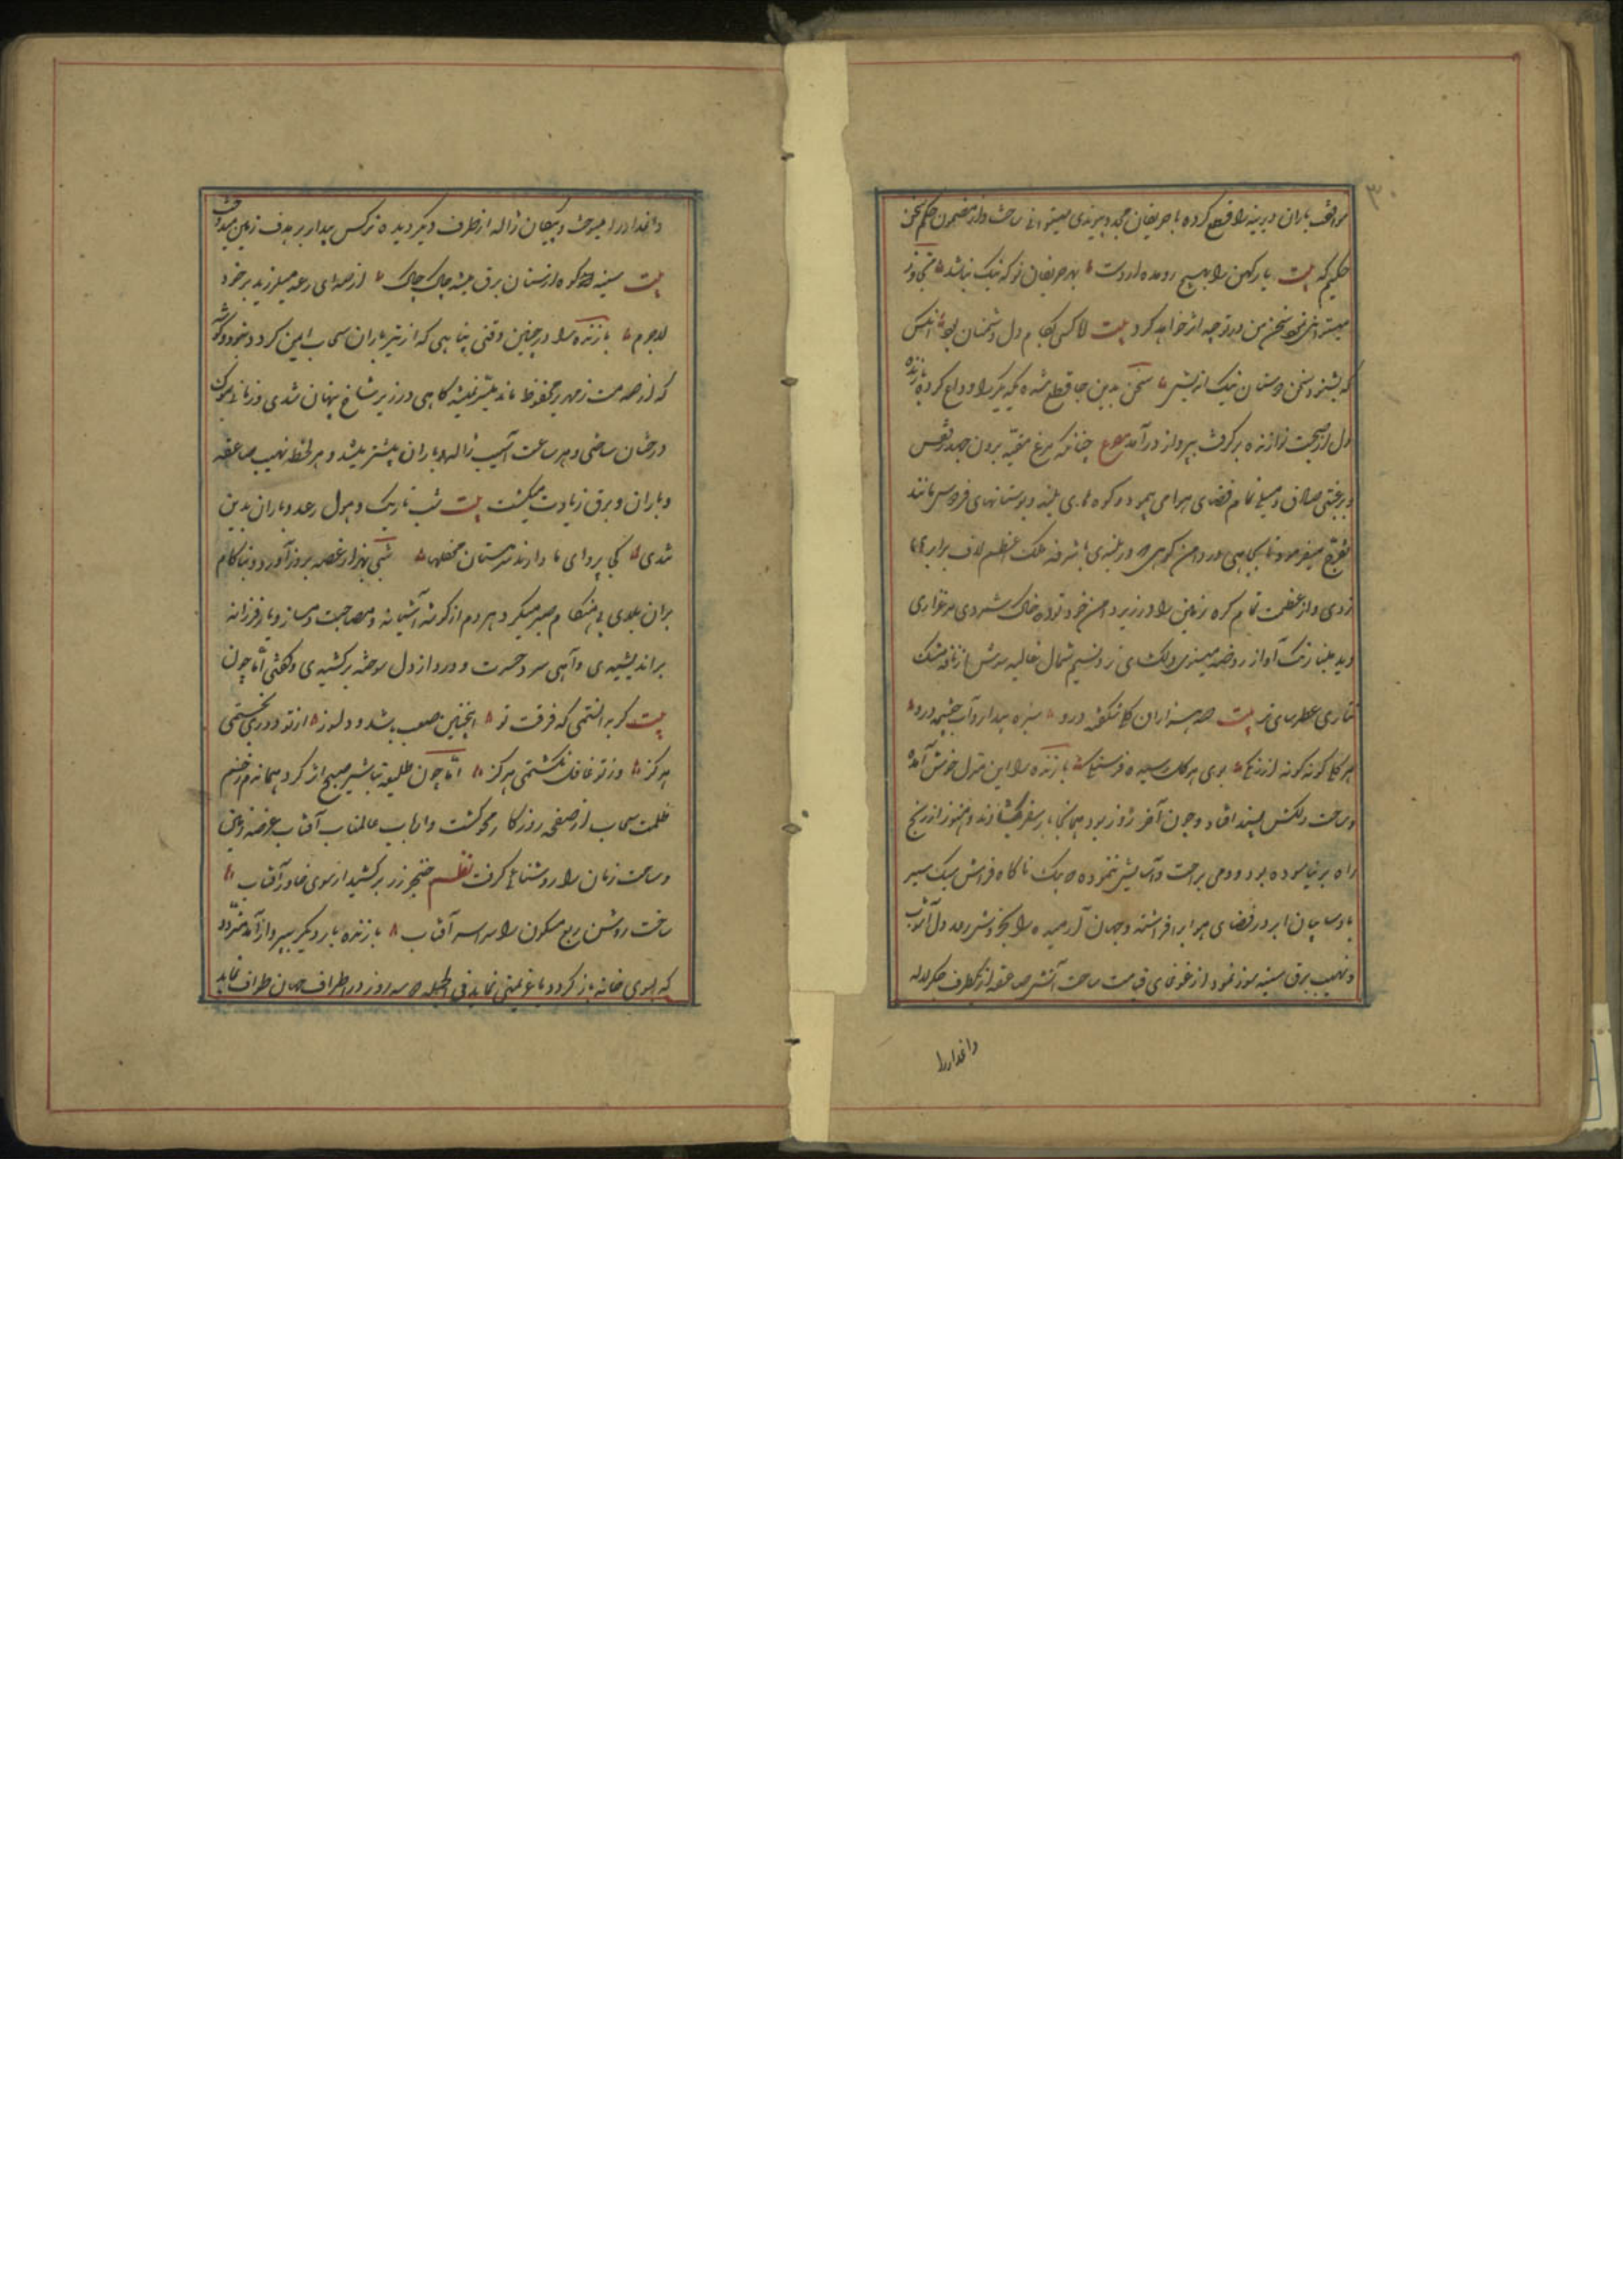 ۳۰
موافقت یاران دیرینه را قطع کرده با حریفان جدید پیوندی میتوانی ساخت و از مضمون حکم سخن
حکیم که بیت یار کهن را بهیچ رو مده از دست بهر حریفان نو که نیک نباشد تجاوز
میتوانی نمود سخن من در تو چه اثر خواهد کرد بیت لا کسی بکام دل دشمنان بود آنکس
که نشنود سخن دوستان نیک اندیش سخن بدین جا قطع شده یکدیگر را وداع کرده بازنده
دل از صحبت نوازنده برگرفت بپرواز درآمد مصرع چنانکه مرغ مقید برون جهد ز قفس
و برغبتی صادق و میلی تمام فضای هوا می پیمود و کوه های بلند و بوستانهای فردوس مانند
تفرج میفرمود تا بجایی در دامن کوهی که در بلندی با شرفه فلک اعظم لاف برابری
زدی و از عظمت تمام کره زمین را در زیر دامن خود توده خاک شمردی مرغزاری
دید مینا رنگ آواز روضه مینوی دلگشای تر و نسیم شمال غالیه سایش از نافه مشک
تتاری عطرسای تر بیت صد هزاران گل شکفته درو سبزه بیدار و آب خفته درو
هر گلی گونه گونه از رنگی بوی هر گل رسیده فرسنگی بازنده را این منزل خوش آمد
و ساحت دلکش پسند افتاد و چون آخر روز بود همانجا بار سفر بگشاد و هنوز از رنج
راه بر نیاسوده بود و دمی براحت و آسایش نغنوده که یک ناگاه فراش سبک سیر
باد سایبان ابر در فضای هوا برافراشته و جهان آرمیده را بخروش رعد دل آشوب
و نهیب برق سینه سوز نمودار غوغای قیامت ساخت آتش صاعقه از یکطرف جگر لاله
داغدار را
داغدار را میسوخت و پیکان ژاله از طرف دیگر دیده نرگس بیدار بر هدف زمین میدوخت
بیت سینه کوه از سنان برق میشد چاک چاک از صدای رعد میلرزید بر خود
لاجرم بازنده را در چنین وقتی پناهی که از تیر باران سحاب ایمن گردد نبود و گوشه
که از صدمت زمهریر محفوظ ماند میسر نمیشد گاهی در زیر شاخ پنهان شدی و زمانی برگ
درختان ساختی و هر ساعت آسیب ژاله و باران بیشتر میشد و هر لحظه نهیب صاعقه
و باران و برق زیادت میگشت بیت شب تاریک و هول رعد و باران بدین
تندی کجا پروای ما دارند سرمستان محفلها شبی بهزار غصه بروز آورد و ناکام
بران بلای بی هنگام صبر میکرد هر دم از گوشه آشیانه و مصاحبت دمساز و یار فرزانه
براندیشیدی و آهی سرد حسرت و درد از دل سوخته برکشیدی و گفتی اما چون
بیت گر بدانستمی که فرقت تو اینچنین صعب باشد و دلسوز از تو دوری نجستمی
هرگز وز تو غافل نگشتمی هرگز اما چون طلیعه تباشیر صبح اثر کرد هماندم رقم
ظلمت سحاب از صفحه روزگار محو گشت و از تاب عالمتاب آفتاب عرصه زمین
و ساحت زمان را روشنائی گرفت نظم خنجر زر برکشید از سوی خاور آفتاب
ساخت روشن ربع مسکون را سراسر آفتاب بازنده بار دیگر بپرواز آمد متردد
که بسوی خانه باز گردد یا عزیمتی نماید فی الجمله که سه روز در اطراف جهان طواف نماید